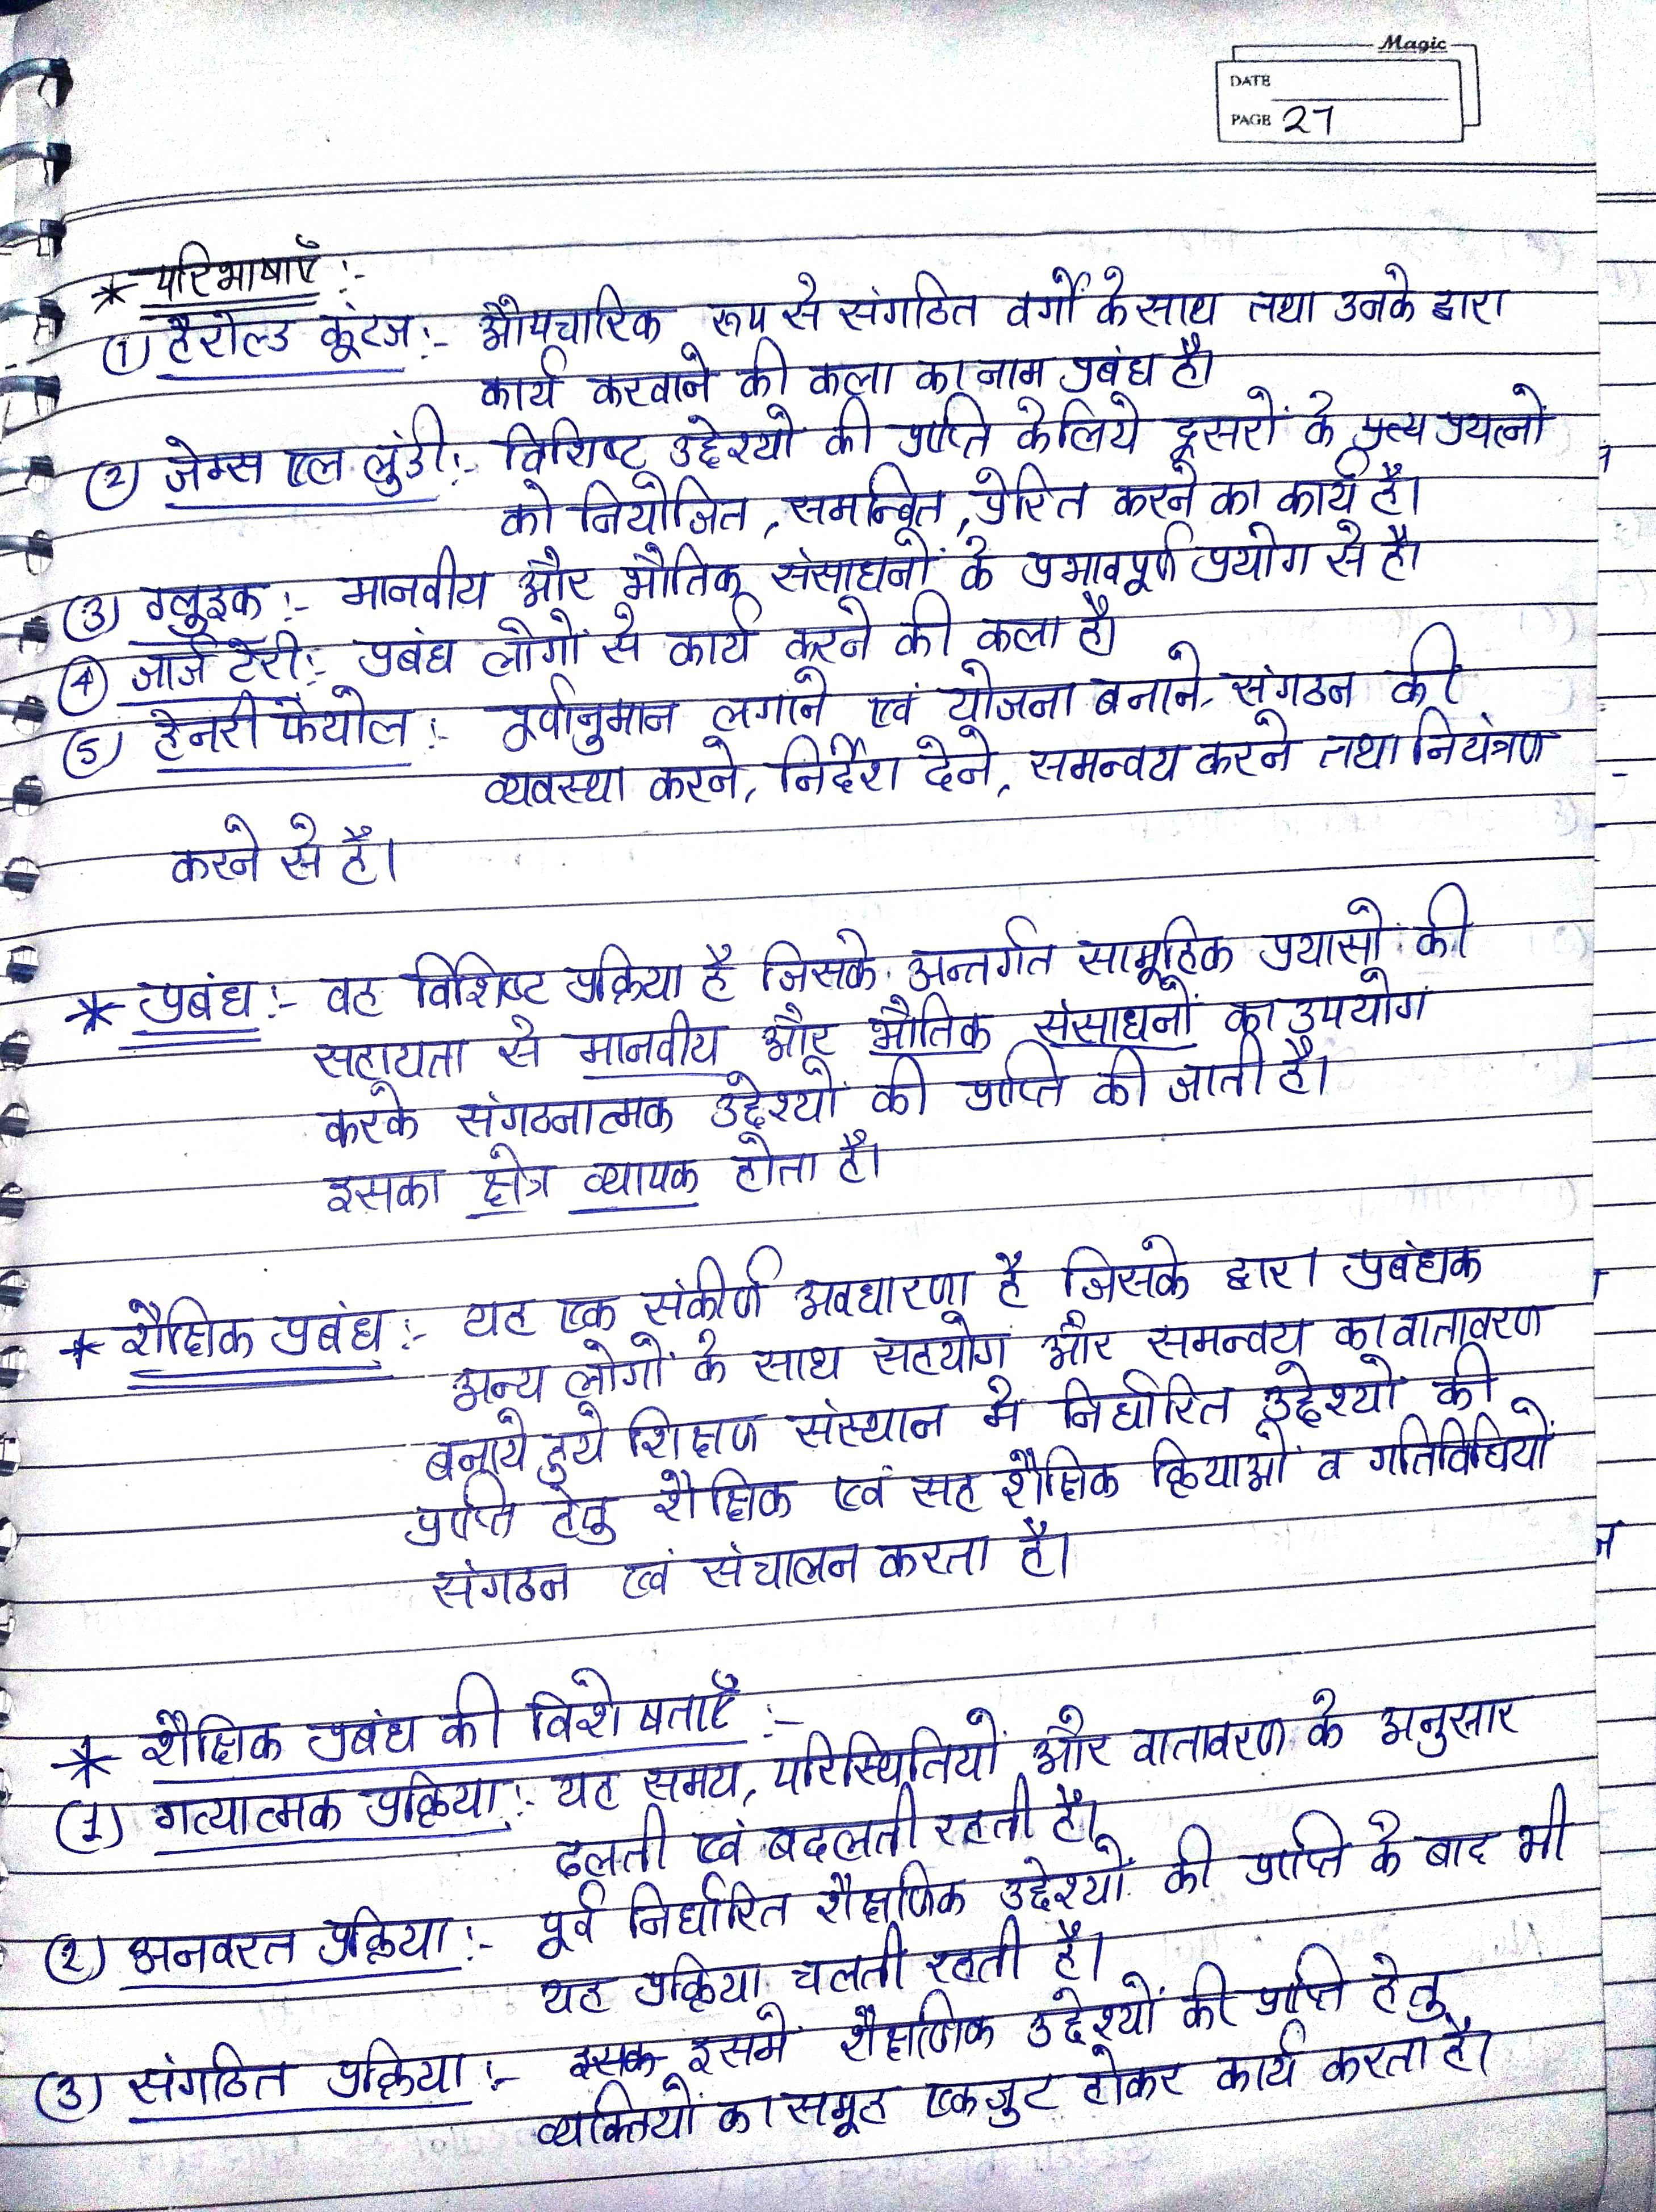 Magic
DATE
PAGE 27
* परिभाषाएँ :-
(1) हैरोल्ड कूंटज :- औपचारिक रूप से संगठित वर्गों के साथ तथा उनके द्वारा
कार्य करवाने की कला का नाम प्रबंध है।
(2) जेम्स एल लुंडी :- विशिष्ट उद्देश्यों की प्राप्ति के लिये दूसरों के प्रत्य प्रयत्नों
को नियोजित, समन्वित, प्रेरित करने का कार्य है।
(3) ग्लुइक :- मानवीय और भौतिक संसाधनों के प्रभावपूर्ण प्रयोग से है।
(4) जार्ज टेरी :- प्रबंध लोगों से कार्य करने की कला है।
(5) हेनरी फेयोल :- पूर्वानुमान लगाने एवं योजना बनाने, संगठन की
व्यवस्था करने, निर्देश देने, समन्वय करने तथा नियंत्रण
करने से है।
* प्रबंध :- वह विशिष्ट प्रक्रिया है जिसके अन्तर्गत सामूहिक प्रयासो की
सहायता से मानवीय और भौतिक संसाधनों का उपयोग
करके संगठनात्मक उद्देश्यों की प्राप्ति की जाती है।
इसका क्षेत्र व्यापक होता है।
* शैक्षिक प्रबंध :- यह एक संकीर्ण अवधारणा है जिसके द्वारा प्रबंधक
अन्य लोगों के साथ सहयोग और समन्वय का वातावरण
बनाये हुये शिक्षण संस्थान मे निर्धारित उद्देश्यो की
प्राप्ति हेतु शैक्षिक एवं सह शैक्षिक क्रियाओं व गतिविधियों
संगठन एवं संचालन करता है।
* शैक्षिक प्रबंध की विशेषताएँ :-
(1) गत्यात्मक प्रक्रिया :- यह समय, परिस्थितियों और वातावरण के अनुसार
ढलती एवं बदलती रहती है।
(2) अनवरत प्रक्रिया :- पूर्व निर्धारित शैक्षणिक उद्देश्यों की प्राप्ति के बाद भी
यह प्रक्रिया चलती रहती है।
(3) संगठित प्रक्रिया :- इसक इसमे शैक्षणिक उद्देश्यों की प्राप्ति हेतु
व्यक्तियों का समूह एकजुट होकर कार्य करता है।